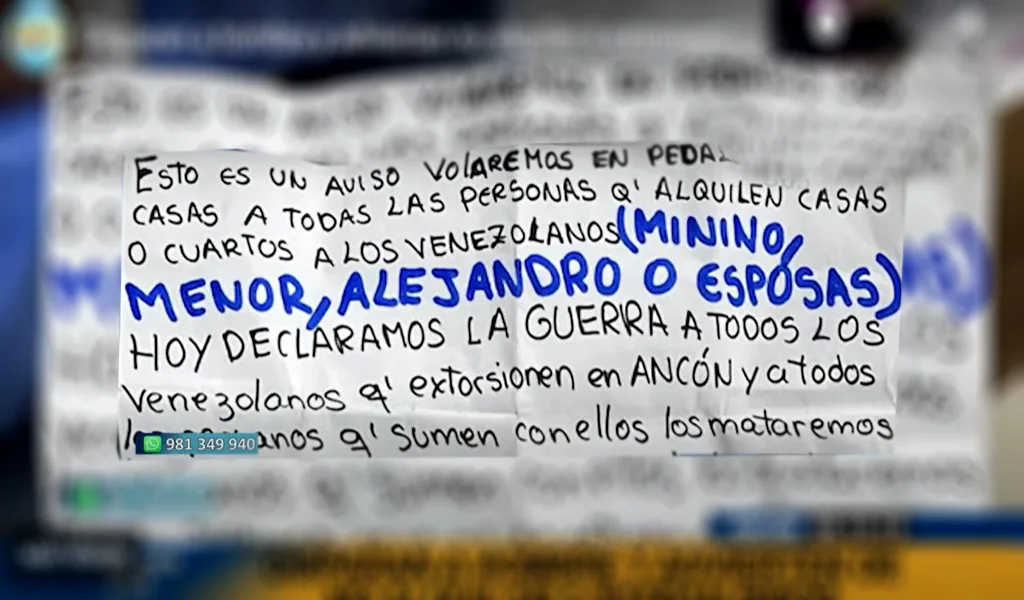 ESTO ES UN AVISO VOLAREMOS EN
CASAS A TODAS LAS PERSONAS Q' ALQUILEN CASAS
O CUARTOS A LOS VENEZOLANOS (MININO,
MENOR, ALEJANDRO O ESPOSAS)
HOY DECLARAMOS LA GUERRA A TODOS LOS
Venezolanos q' extorsionen en ANCÓN y a todos
q' sumen con ellos los mataremos
981 349 940